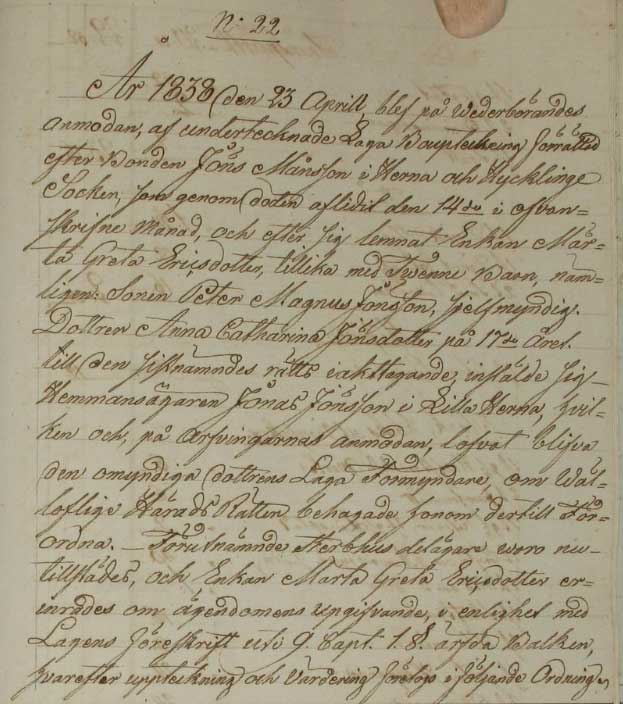 N: 22
År 1838 den 23 Aprill, blef på Wederbörandes
anmodan, af undertecknade Laga Bouptekning förrättad
efter Bonden Jöns Månsson i Herna och Kycklinge
Socken, som genom döden aflidit den 14de i ofvan-
skrifne Månad, och efter sig lemnat Enkan Mär-
ta Greta Ericsdotter, tillika med Twenne Barn, näm-
ligen: Sonen Peter Magnus Jönsson, sjelfmyndig.
Dottren Anna Catharina Jönsdotter på 17de året.
till den sistnämndes rätts iakttagande, instälde sig
Hemmansägaren Jönas Jönsson i Lilla Herna, hvil-
ken och, på Arfvingarnas anmodan, lofvat blifva
den omyndiga dottrens Laga Förmyndare, om Wäl-
loflige Härads Rätten behagade honom dertill För-
ordna. — Förutnämnde Sterbhus delägare woro nu
tillstädes, och Enkan Marta Greta Ericsdotter er-
inrades om ägendomens uppgifvande, i enlighet med
Lagens föreskrift uti 9 Capt. 1 §. ärfda Balken,
hvarefter uppteckning och Värdering företogs i följande Ordning,